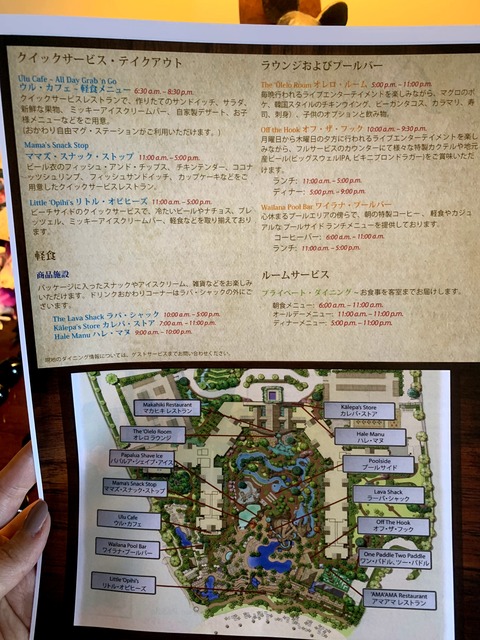 クイックサービス・テイクアウト
Ulu Cafe - All Day Grab 'n Go
ウル・カフェ - 軽食メニュー 6:30 a.m. – 8:30 p.m.
クイックサービスレストランで、作りたてのサンドイッチ、サラダ、
新鮮な果物、ミッキーアイスクリームバー、自家製デザート、お子
様メニューなどをご用意。
(おかわり自由マグ・ステーションがご利用いただけます。)
Mama's Snack Stop
ママズ・スナック・ストップ 11:00 a.m. – 5:00 p.m.
ビール衣のフィッシュ・アンド・チップス、チキンテンダー、ココナ
ッツシュリンプ、フィッシュサンドイッチ、カップケーキなどをご
用意したクイックサービスレストラン。
Little 'Opihi's リトル・オピヒーズ 11:00 a.m. – 5:00 p.m.
ビーチサイドのクイックサービスで、冷たいビールやナチョス、プレ
ッツェル、ミッキーアイスクリームバー、軽食などを取り揃えており
ます。
軽食
商品施設
パッケージに入ったスナックやアイスクリーム、雑貨などをお楽しみ
いただけます。ドリンクおかわりコーナーはラバ・シャックの外にご
ざいます。
The Lava Shack ラバ・シャック 10:00 a.m. – 5:00 p.m.
Kālepa's Store カレパ・ストア 7:00 a.m. – 11:00 p.m.
Hale Manu ハレ・マヌ 9:00 a.m. – 10:00 p.m.
現地のダイニング情報については、ゲストサービスまでお問い合わせください。
ラウンジおよびプールバー
The 'Ōlelo Room オレロ・ルーム 5:00 p.m. – 11:00 p.m.
毎晩行われるライブエンターテイメントを楽しみながら、マグロのポ
ケ、韓国スタイルのチキンウイング、ビーガンタコス、カラマリ、寿
司、刺身)、子供のオプションと飲み物。
Off the Hook オフ・ザ・フック 10:00 a.m. – 9:30 p.m.
月曜日から木曜日の夕方に行われるライブエンターテイメントを楽し
みながら、フルサービスのカウンターにて様々な特製カクテルや地元
産ビール(ビッグスウェルIPA, ビキニブロンドラガー)をご賞味いただ
けます。
ランチ: 11:00 a.m. – 5:00 p.m.
ディナー: 5:00 p.m. – 9:00 p.m.
Wailana Pool Bar ワイラナ・プールバー
心休まるプールエリアの傍らで、朝の特製コーヒー、軽食やカジュ
アルなプールサイドランチメニューを提供しております。
コーヒーバー: 6:00 a.m. – 11:00 a.m.
ランチ: 11:00 a.m. – 5:00 p.m.
ルームサービス
プライベート・ダイニング – お食事を客室までお届けします。
朝食メニュー: 6:00 a.m. – 11:00 a.m.
オールデーメニュー: 11:00 a.m. – 11:00 p.m.
ディナーメニュー: 5:00 p.m. – 11:00 p.m.
Makahiki Restaurant
マカヒキ レストラン
The 'Ōlelo Room
オレロ ラウンジ
Papalua Shave Ice
パパルア・シェイブ・アイス
Mama's Snack Stop
ママズ・スナック・ストップ
Ulu Cafe
ウル・カフェ
Wailana Pool Bar
ワイラナ・プールバー
Little 'Opihi's
リトル・オピヒーズ
Kālepa's Store
カレパ・ストア
Hale Manu
ハレ・マヌ
Poolside
プールサイド
Lava Shack
ラーバ・シャック
Off The Hook
オフ・ザ・フック
One Paddle Two Paddle
ワン・パドル、ツー・パドル
'AMA'AMA Restaurant
アマアマ レストラン